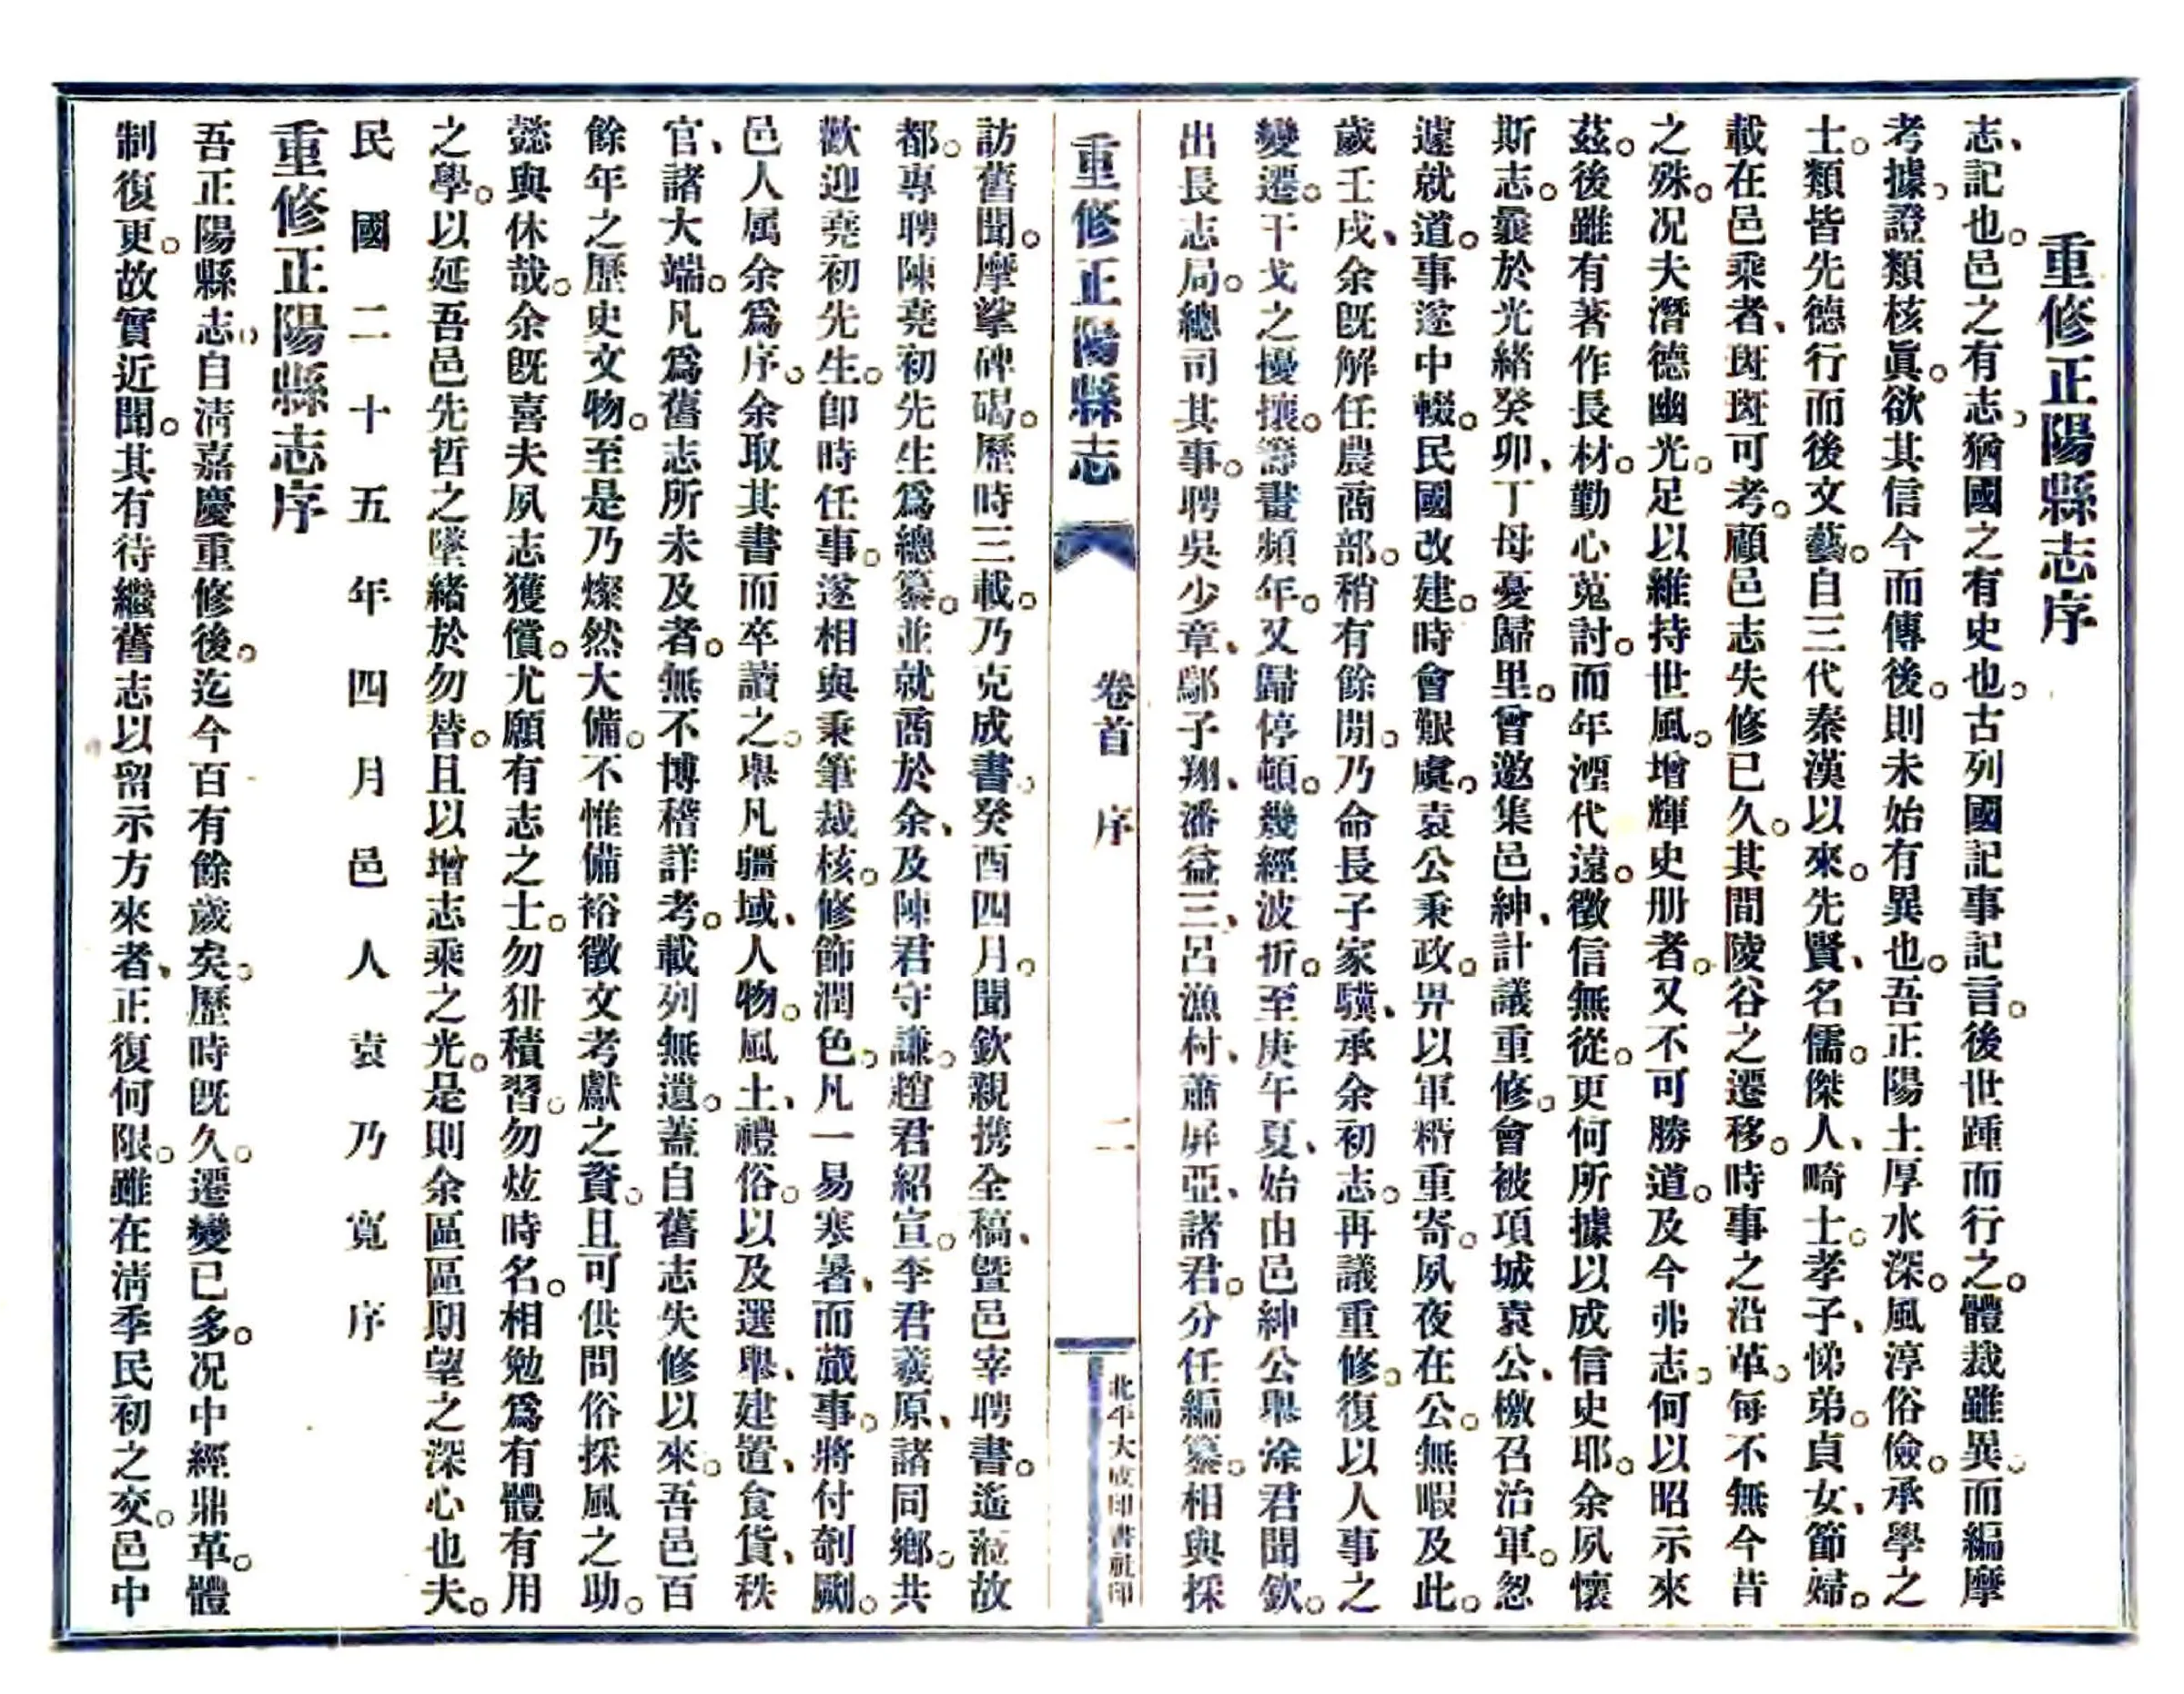 重修正陽縣志序
志、記也。邑之有志。猶國之有史也。古列國記事記言。後世踵而行之。體裁雖異。而編摩
考據。證類核眞。欲其信今而傳後。則未始有異也。吾正陽土厚水深。風淳俗儉。承學之
士。類皆先德行而後文藝。自三代秦漢以來。先賢、名儒。傑人、畸士。孝子、悌弟。貞女、節婦。
載在邑乘者、斑斑可考。顧邑志失修已久。其間陵谷之遷移。時事之沿革。每不無今昔
之殊。况夫潛德幽光。足以維持世風。增輝史册者。又不可勝道。及今弗志。何以昭示來
茲。後雖有著作長材。勤心蒐討。而年湮代遠。徵信無從。更何所據以成信史耶。余夙懷
斯志。曩於光緒癸卯、丁母憂歸里。曾邀集邑紳、計議重修。會被項城袁公、檄召治軍。忽
遽就道。事遂中輟。民國改建。時會艱虞。袁公秉政。畀以軍糈重寄。夙夜在公。無暇及此。
歲壬戌、余旣解任農商部。稍有餘閒。乃命長子家驥、承余初志。再議重修。復以人事之
變遷。干戈之擾攘。籌畫頻年。又歸停頓。幾經波折。至庚午夏、始由邑紳公舉涂君聞欽。
出長志局。總司其事。聘吳少章、鄢子翔、潘益三、呂漁村、蕭屏亞、諸君。分任編纂。相與採
重修正陽縣志
卷首 序
二
北平大成印書社印
訪舊聞。摩挲碑碣。歷時三載。乃克成書。癸酉四月。聞欽親携全稿、曁邑宰聘書。遙蒞故
都。專聘陳堯初先生爲總纂。並就商於余、及陳君守謙。趙君紹宣。李君羲原、諸同鄉。共
歡迎堯初先生。卽時任事。遂相與秉筆裁核。修飾潤色。凡一易寒暑、而蕆事。將付剞劂。
邑人属余爲序。余取其書而卒讀之。舉凡疆域、人物。風土、禮俗。以及選舉、建置、食貨、秩
官、諸大端。凡爲舊志所未及者。無不博稽詳考。載列無遺。蓋自舊志失修以來。吾邑百
餘年之歷史文物。至是乃燦然大備。不惟備裕徵文考獻之資。且可供問俗採風之助。
懿與休哉。余旣喜夫夙志獲償。尤願有志之士。勿狃積習。勿炫時名。相勉爲有體有用
之學。以延吾邑先哲之墜緒於勿替。且以增志乘之光。是則余區區期望之深心也夫。
民國二十五年四月邑人袁乃寬序
重修正陽縣志序
吾正陽縣志。自淸嘉慶重修後。迄今百有餘歲矣。歷時旣久。遷變已多。况中經鼎革。體
制復更。故實近聞。其有待繼舊志以留示方來者、正復何限。雖在淸季民初之交。邑中